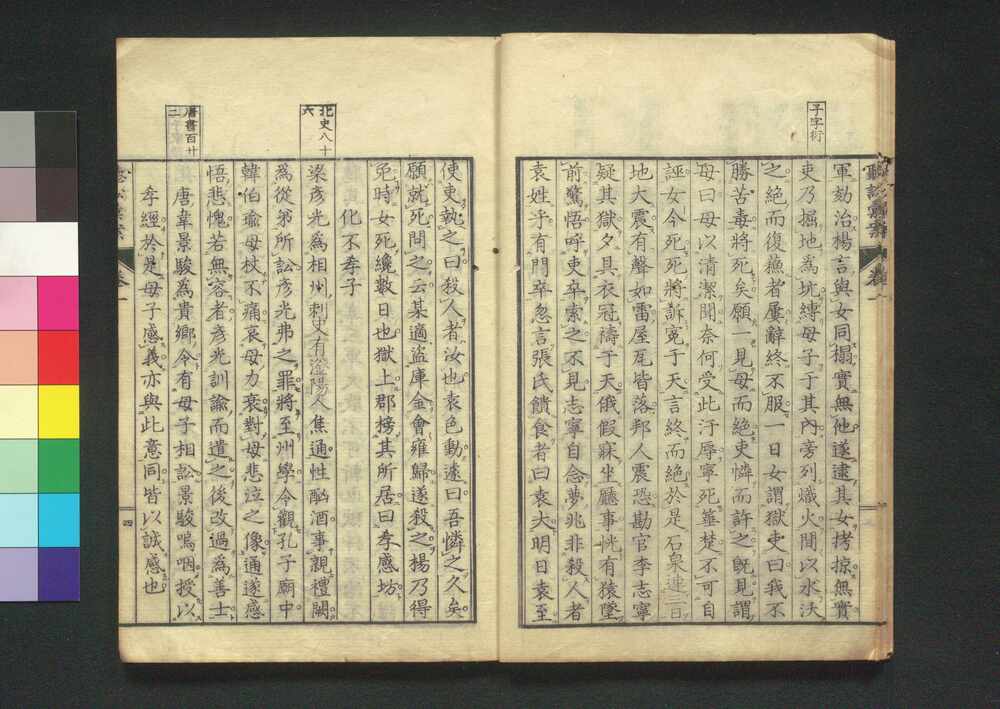 子字衍
軍劾治楊言與女同榻實無他遂逮其女拷掠無實
吏乃掘地為坑縛母子于其內旁列熾火間以水沃
之絕而復蘇者屢辭終不服一日女謂獄吏曰我不
勝苦毒將死矣願一見母而絕吏憐而許之既見謂
母曰母以清潔聞奈何受此汙辱寧死箠楚不可自
誣女今死死將訴冤于天言終而絕於是石泉連三日
地大震有聲如雷屋瓦皆落邦人震恐勘官李志寧
疑其獄夕具衣冠禱于天俄假寐坐廳事恍有猿墜
前驚悟呼吏卒索之不見志寧自念夢兆非殺人者
袁姓乎有門卒忽言張氏饋食者曰袁大明日袁至
使吏執之曰殺人者汝也袁色動遽曰吾憐之久矣
願就死問之云某適盜庫金會雍歸遂殺之楊乃得
免時女死纔數日也獄上郡榜其所居曰孝感坊
化不孝子
北史八十六
梁彥光為相州刺史有滏陽人焦通性酗酒事親禮闕
為從弟所訟彥光弗之罪將至州學令觀孔子廟中
韓伯瑜母杖不痛哀母力衰對母悲泣之像通遂感
悟悲愧若無容者彥光訓諭而遣之後改過為善士
唐書百廿二
唐韋景駿為貴鄉令有母子相訟景駿嗚咽授以
孝經於是母子感義亦與此意同皆以誠感也
卷一
四